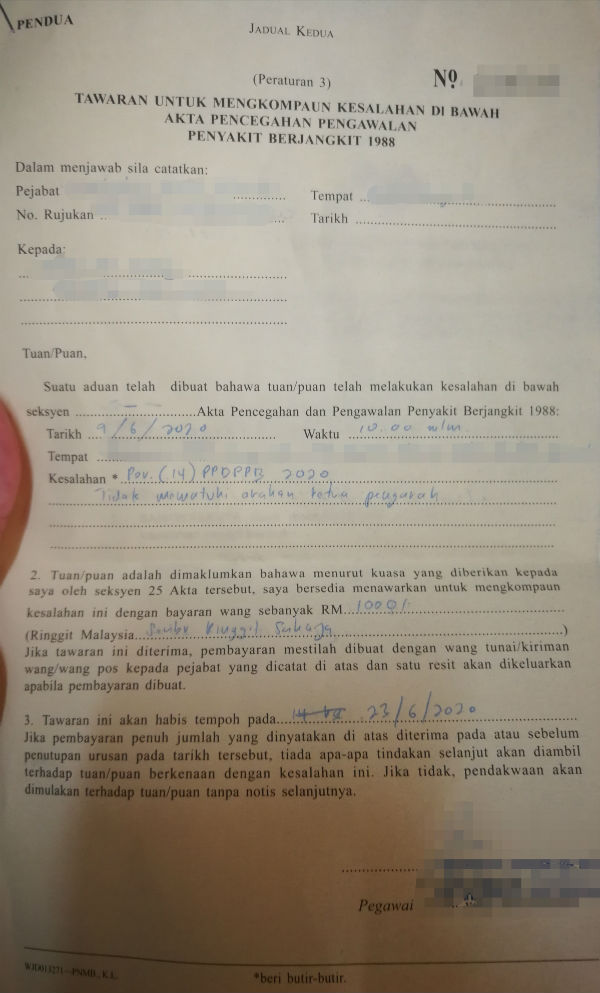 PENDUA
JADUAL KEDUA
(Peraturan 3)
Nº
TAWARAN UNTUK MENGKOMPAUN KESALAHAN DI BAWAH
AKTA PENCEGAHAN PENGAWALAN
PENYAKIT BERJANGKIT 1988
Dalam menjawab sila catatkan:
Pejabat ............ Tempat ............
No. Rujukan ............ Tarikh ............
Kepada:
Tuan/Puan,
Suatu aduan telah dibuat bahawa tuan/puan telah melakukan kesalahan di bawah
seksyen ....–....Akta Pencegahan dan Pengawalan Penyakit Berjangkit 1988:
Tarikh 9/6/2020 Waktu 10.00 mlm
Tempat
Kesalahan * Per. (14) PPDPPB 2020
Tidak mematuhi arahan ketua pengarah
2. Tuan/puan adalah dimaklumkan bahawa menurut kuasa yang diberikan kepada
saya oleh seksyen 25 Akta tersebut, saya bersedia menawarkan untuk mengkompaun
kesalahan ini dengan bayaran wang sebanyak RM 1000/-
(Ringgit Malaysia Seribu Ringgit Sahaja)
Jika tawaran ini diterima, pembayaran mestilah dibuat dengan wang tunai/kiriman
wang/wang pos kepada pejabat yang dicatat di atas dan satu resit akan dikeluarkan
apabila pembayaran dibuat.
3. Tawaran ini akan habis tempoh pada 23/6/2020
Jika pembayaran penuh jumlah yang dinyatakan di atas diterima pada atau sebelum
penutupan urusan pada tarikh tersebut, tiada apa-apa tindakan selanjut akan diambil
terhadap tuan/puan berkenaan dengan kesalahan ini. Jika tidak, pendakwaan akan
dimulakan terhadap tuan/puan tanpa notis selanjutnya.
Pegawai
WJD013271—PNMB., K.L.
*beri butir-butir.